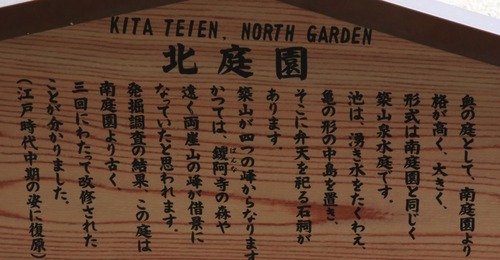 KITA TEIEN, NORTH GARDEN
北庭園
奥の庭として、南庭園より
格が高く、大きく、
形式は南庭園と同じく
築山泉水庭です。
池は、湧き水をたくわえ、
亀の形の中島を置き、
そこに弁天を祀る石祠が
あります。
築山が四つの峰からなります
かつては、鑁阿寺の森や
ばんな
遠く両崖山の峰が借景に
なっていたと思われます。
発掘調査の結果 この庭は
南庭園より古く、
三回にわたって改修された
ことが分かりました。
(江戸時代中期の姿に復原)